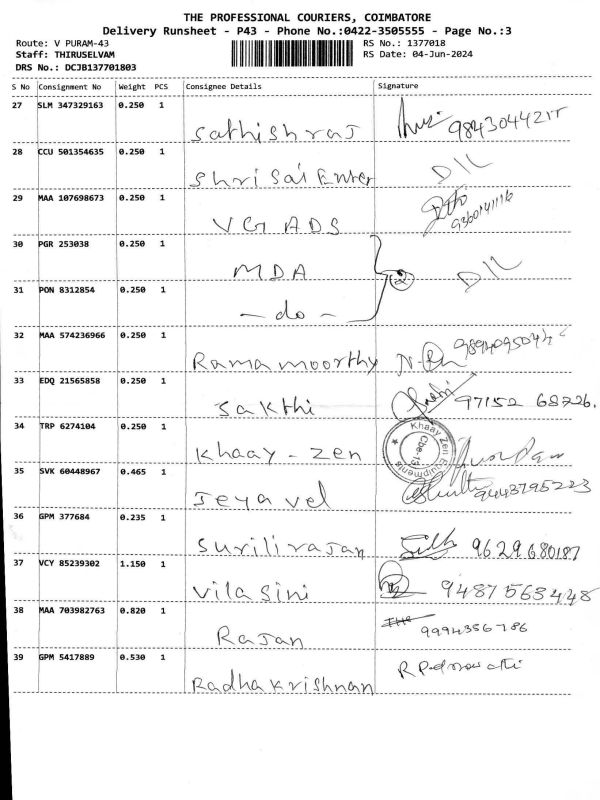 THE PROFESSIONAL COURIERS, COIMBATORE
Delivery Runsheet - P43 - Phone No.:0422-3505555 - Page No.:3
Route: V PURAM-43
Staff: THIRUSELVAM
DRS No.: DCJB137701803
RS No.: 1377018
RS Date: 04-Jun-2024
S No Consignment No Weight PCS Consignee Details Signature
27 SLM 347329163 0.250 1 Sathishraj
28 CCU 501354635 0.250 1 Shri Sai Enter D/L
29 MAA 107698673 0.250 1 VG ADS
30 PGR 253038 0.250 1 MDA 2 D/L
31 PON 8312854 0.250 1 - do -
32 MAA 574236966 0.250 1 Ramamoorthy
33 EDQ 21565858 0.250 1 Sakthi 97152 68726.
34 TRP 6274104 0.250 1 Khaay - Zen Khaay Zen Equipments Cbe-15
35 SVK 60448967 0.465 1 Jeyavel 9443795223
36 GPM 377684 0.235 1 Surilirajan 9629680187
37 VCY 85239302 1.150 1 Vilasini 9487563448
38 MAA 703982763 0.820 1 Rajan 9994356786
39 GPM 5417889 0.530 1 Radhakrishnan